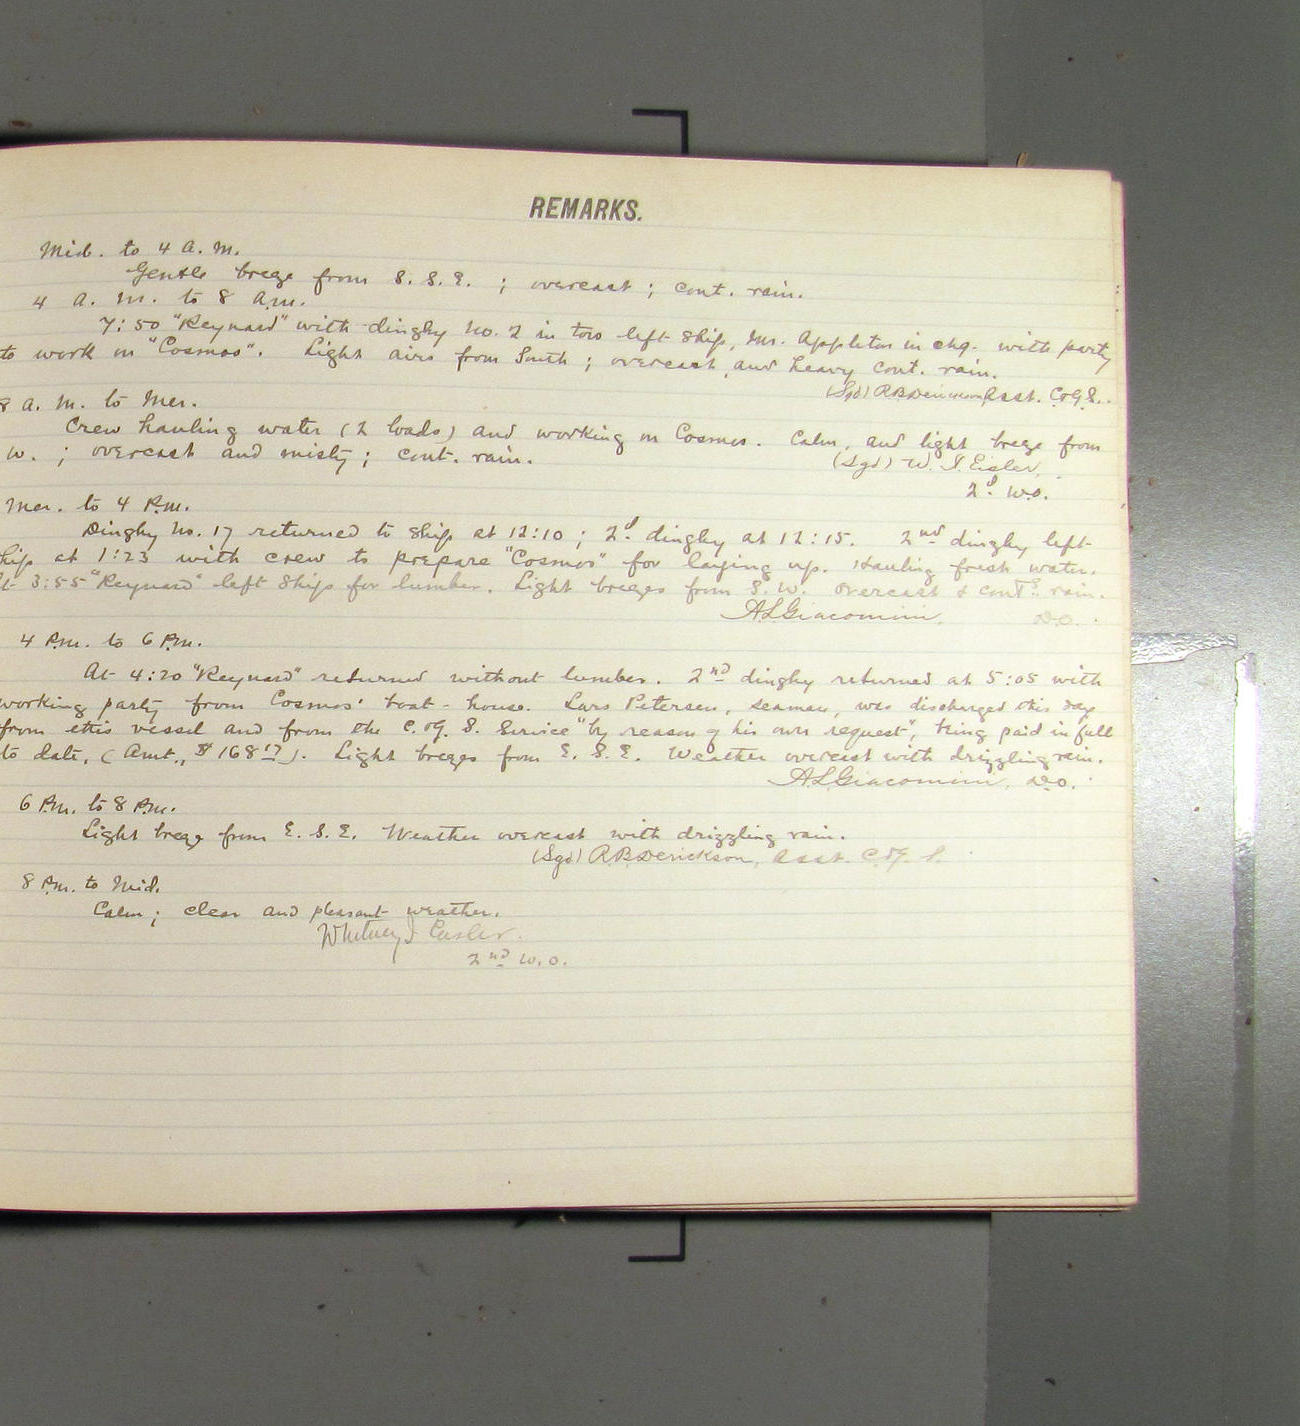 REMARKS.
Mid. to 4 A. M.
Gentle breeze from S. S. E. ; overcast ; cont. rain.
4 A. M. to 8 A.M.
7:50 "Reynard" with dinghy No. 2 in tow left ship, Mr. Appleton in chg. with party
to work on "Cosmos". Light airs from South ; overcast, and heavy cont. rain.
(Sgd) R.B. Derickson, Asst. C. & G. S.
8 A. M. to Mer.
Crew hauling water (2 loads) and working on Cosmos. Calm, and light breeze from
W. ; overcast and misty ; cont. rain.
(Sgd) W. I. Eisler,
2d W.O.
Mer. to 4 P.M.
Dinghy No. 17 returned to ship at 12:10 ; 2d dinghy at 12:15. 2nd dinghy left
hip at 1:23 with crew to prepare "Cosmos" for laying up. Hauling fresh water.
t 3:55 "Reynard" left Ship for lumber. Light breezes from S. W. Overcast & contg. rain.
A L Giacomini, D.O.
4 P.M. to 6 P.M.
At 4:20 "Reynard" returned without lumber. 2nd dinghy returned at 5:05 with
working party from Cosmos' boat-house. Lars Petersen, seaman, was discharged this day
from this vessel and from the C. & G. S. Service "by reason of his own request", being paid in full
to date, (Amt., $168 17). Light breezes from E. S. E. Weather overcast with drizzling rain.
A L Giacomini, D.O.
6 P.M. to 8 P.M.
Light breeze from E. S. E. Weather overcast with drizzling rain.
(Sgd) R.B. Derickson, Asst. C. & G. S.
8 P.M. to Mid.
Calm ; clear and pleasant weather.
Whitney I Eisler.
2nd W.O.